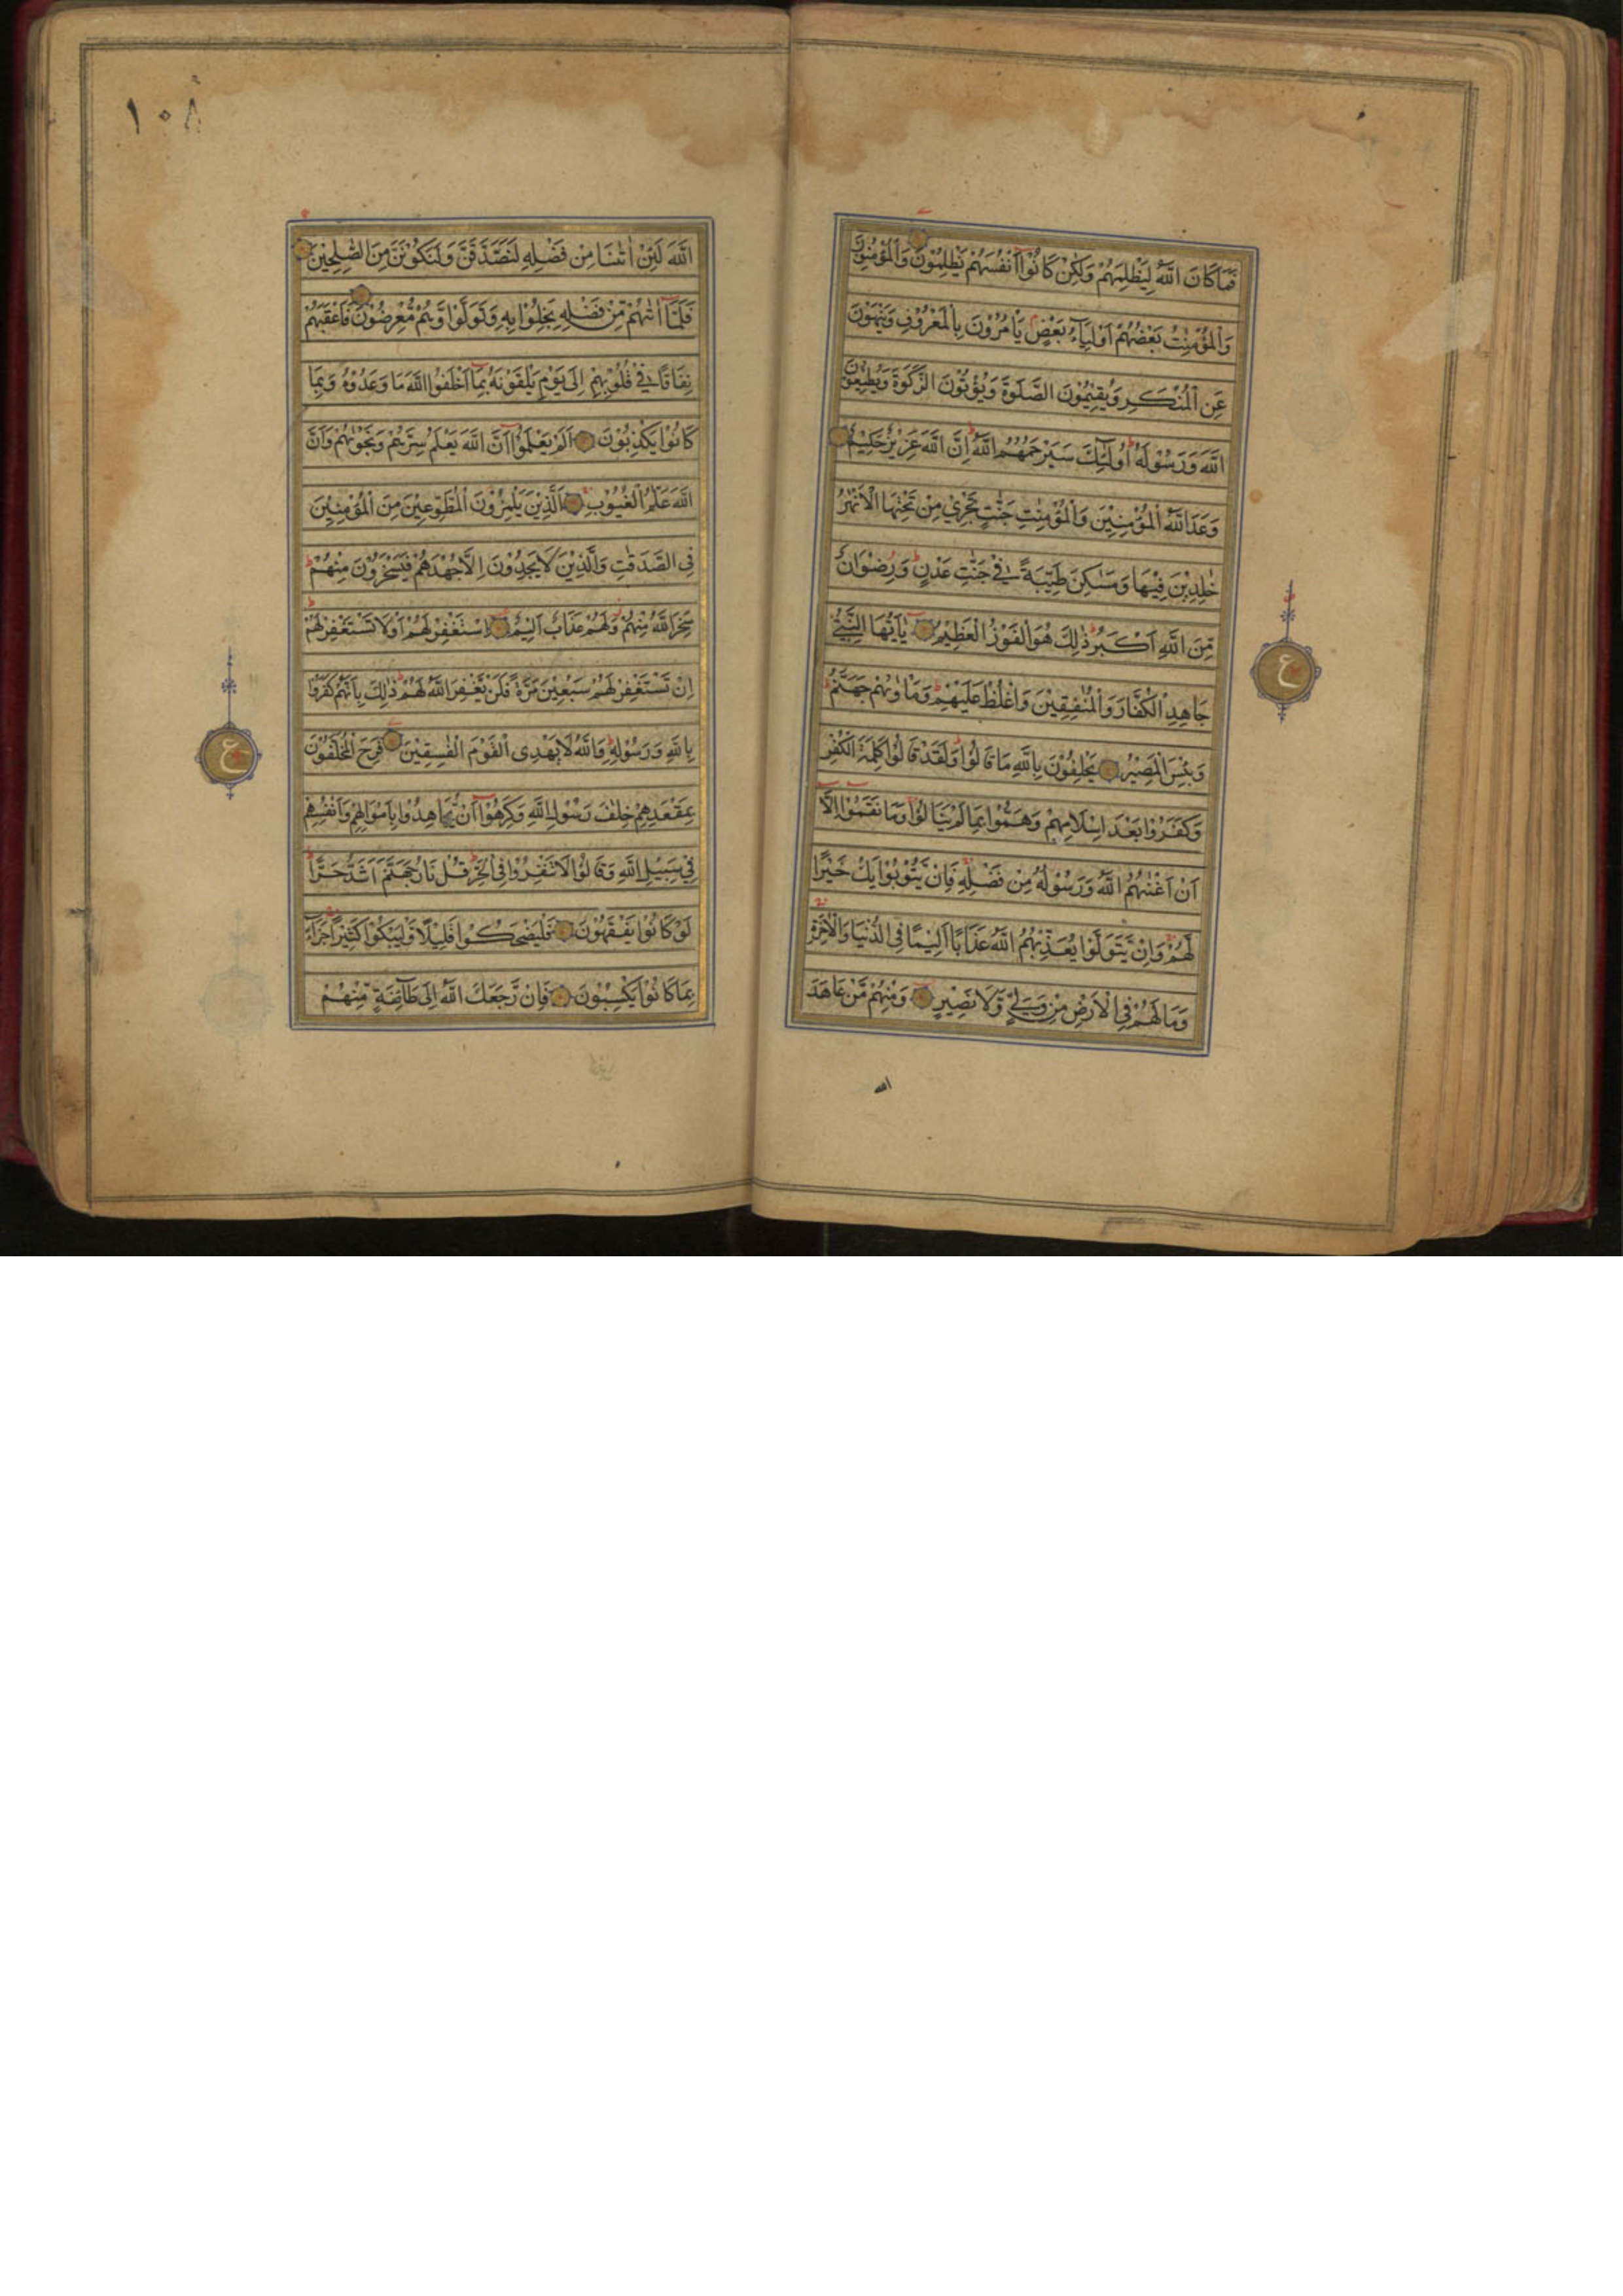 فَمَا كَانَ اللّٰهُ لِيَظْلِمَهُمْ وَلٰكِنْ كَانُوْٓا اَنْفُسَهُمْ يَظْلِمُوْنَ وَالْمُؤْمِنُوْنَ
وَالْمُؤْمِنٰتُ بَعْضُهُمْ اَوْلِيَآءُ بَعْضٍ يَاْمُرُوْنَ بِالْمَعْرُوْفِ وَيَنْهَوْنَ
عَنِ الْمُنْكَرِ وَيُقِيْمُوْنَ الصَّلٰوةَ وَيُؤْتُوْنَ الزَّكٰوةَ وَيُطِيْعُوْنَ
اللّٰهَ وَرَسُوْلَهٗ اُولٰٓئِكَ سَيَرْحَمُهُمُ اللّٰهُ اِنَّ اللّٰهَ عَزِيْزٌ حَكِيْمٌ
وَعَدَ اللّٰهُ الْمُؤْمِنِيْنَ وَالْمُؤْمِنٰتِ جَنّٰتٍ تَجْرِيْ مِنْ تَحْتِهَا الْاَنْهٰرُ
خٰلِدِيْنَ فِيْهَا وَمَسٰكِنَ طَيِّبَةً فِيْ جَنّٰتِ عَدْنٍ وَرِضْوَانٌ
مِّنَ اللّٰهِ اَكْبَرُ ذٰلِكَ هُوَ الْفَوْزُ الْعَظِيْمُ يٰٓاَيُّهَا النَّبِيُّ
جَاهِدِ الْكُفَّارَ وَالْمُنٰفِقِيْنَ وَاغْلُظْ عَلَيْهِمْ وَمَاْوٰىهُمْ جَهَنَّمُ
وَبِئْسَ الْمَصِيْرُ يَحْلِفُوْنَ بِاللّٰهِ مَا قَالُوْا وَلَقَدْ قَالُوْا كَلِمَةَ الْكُفْرِ
وَكَفَرُوْا بَعْدَ اِسْلَامِهِمْ وَهَمُّوْا بِمَا لَمْ يَنَالُوْا وَمَا نَقَمُوْٓا اِلَّآ
اَنْ اَغْنٰىهُمُ اللّٰهُ وَرَسُوْلُهٗ مِنْ فَضْلِهٖ فَاِنْ يَّتُوْبُوْا يَكُ خَيْرًا
لَّهُمْ وَاِنْ يَّتَوَلَّوْا يُعَذِّبْهُمُ اللّٰهُ عَذَابًا اَلِيْمًا فِى الدُّنْيَا وَالْاٰخِرَةِ
وَمَا لَهُمْ فِى الْاَرْضِ مِنْ وَّلِيٍّ وَّلَا نَصِيْرٍ وَمِنْهُمْ مَّنْ عَاهَدَ
الله
ع
١٠٨
اللّٰهَ لَئِنْ اٰتٰىنَا مِنْ فَضْلِهٖ لَنَصَّدَّقَنَّ وَلَنَكُوْنَنَّ مِنَ الصّٰلِحِيْنَ
فَلَمَّآ اٰتٰىهُمْ مِّنْ فَضْلِهٖ بَخِلُوْا بِهٖ وَتَوَلَّوْا وَّهُمْ مُّعْرِضُوْنَ فَاَعْقَبَهُمْ
نِفَاقًا فِيْ قُلُوْبِهِمْ اِلٰى يَوْمِ يَلْقَوْنَهٗ بِمَآ اَخْلَفُوا اللّٰهَ مَا وَعَدُوْهُ وَبِمَا
كَانُوْا يَكْذِبُوْنَ اَلَمْ يَعْلَمُوْٓا اَنَّ اللّٰهَ يَعْلَمُ سِرَّهُمْ وَنَجْوٰىهُمْ وَاَنَّ
اللّٰهَ عَلَّامُ الْغُيُوْبِ اَلَّذِيْنَ يَلْمِزُوْنَ الْمُطَّوِّعِيْنَ مِنَ الْمُؤْمِنِيْنَ
فِى الصَّدَقٰتِ وَالَّذِيْنَ لَا يَجِدُوْنَ اِلَّا جُهْدَهُمْ فَيَسْخَرُوْنَ مِنْهُمْ
سَخِرَ اللّٰهُ مِنْهُمْ وَلَهُمْ عَذَابٌ اَلِيْمٌ اِسْتَغْفِرْ لَهُمْ اَوْ لَا تَسْتَغْفِرْ لَهُمْ
اِنْ تَسْتَغْفِرْ لَهُمْ سَبْعِيْنَ مَرَّةً فَلَنْ يَّغْفِرَ اللّٰهُ لَهُمْ ذٰلِكَ بِاَنَّهُمْ كَفَرُوْا
بِاللّٰهِ وَرَسُوْلِهٖ وَاللّٰهُ لَا يَهْدِى الْقَوْمَ الْفٰسِقِيْنَ فَرِحَ الْمُخَلَّفُوْنَ
بِمَقْعَدِهِمْ خِلٰفَ رَسُوْلِ اللّٰهِ وَكَرِهُوْٓا اَنْ يُّجَاهِدُوْا بِاَمْوَالِهِمْ وَاَنْفُسِهِمْ
فِيْ سَبِيْلِ اللّٰهِ وَقَالُوْا لَا تَنْفِرُوْا فِى الْحَرِّ قُلْ نَارُ جَهَنَّمَ اَشَدُّ حَرًّا
لَوْ كَانُوْا يَفْقَهُوْنَ فَلْيَضْحَكُوْا قَلِيْلًا وَّلْيَبْكُوْا كَثِيْرًا جَزَآءً
بِمَا كَانُوْا يَكْسِبُوْنَ فَاِنْ رَّجَعَكَ اللّٰهُ اِلٰى طَآئِفَةٍ مِّنْهُمْ
ع